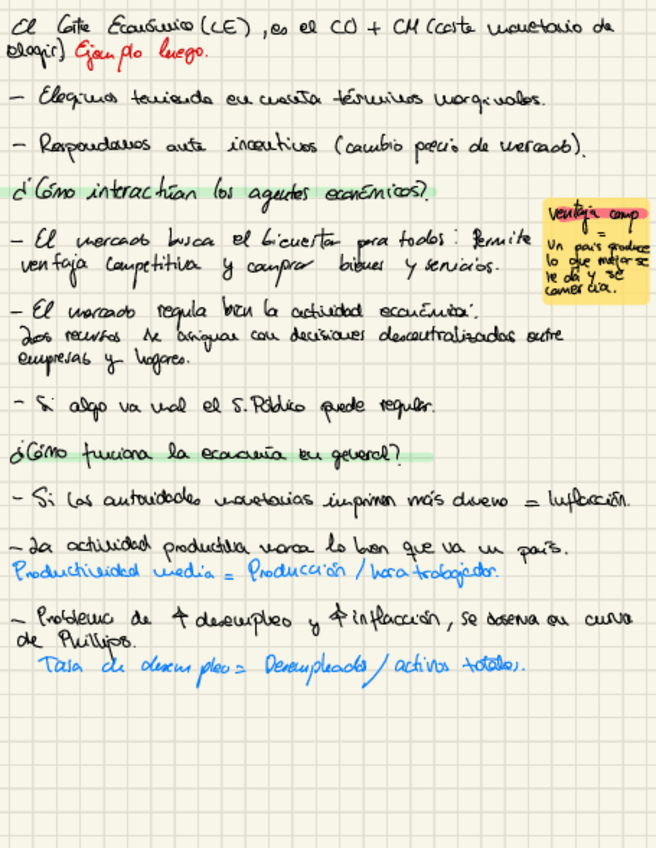 El Coste Económico (CE), es el CO + CM (coste monetario de
elegir) Ejemplo luego.
- Elegimos teniendo en cuenta términos marginales.
- Respondemos ante incentivos (cambio precio de mercado).
¿Cómo interactúan los agentes económicos?
- El mercado busca el bienestar para todos: Permite
ventaja competitiva y comprar bienes y servicios.
ventaja comp
=
Un país produce
lo que mejor se
le da y se
comercia.
- El mercado regula bien la actividad económica:
Los recursos se asignan con decisiones descentralizadas entre
empresas y hogares.
- Si algo va mal el S. Público puede regular.
¿Cómo funciona la economía en general?
- Si las autoridades monetarias imprimen más dinero = Inflacción.
- La actividad productiva marca lo bien que va un país.
Productividad media = Producción / hora trabajador.
- Problema de ↑ desempleo y ↑ inflacción, se observa en curva
de Phillips.
Tasa de desempleo = Desempleados / activos totales.